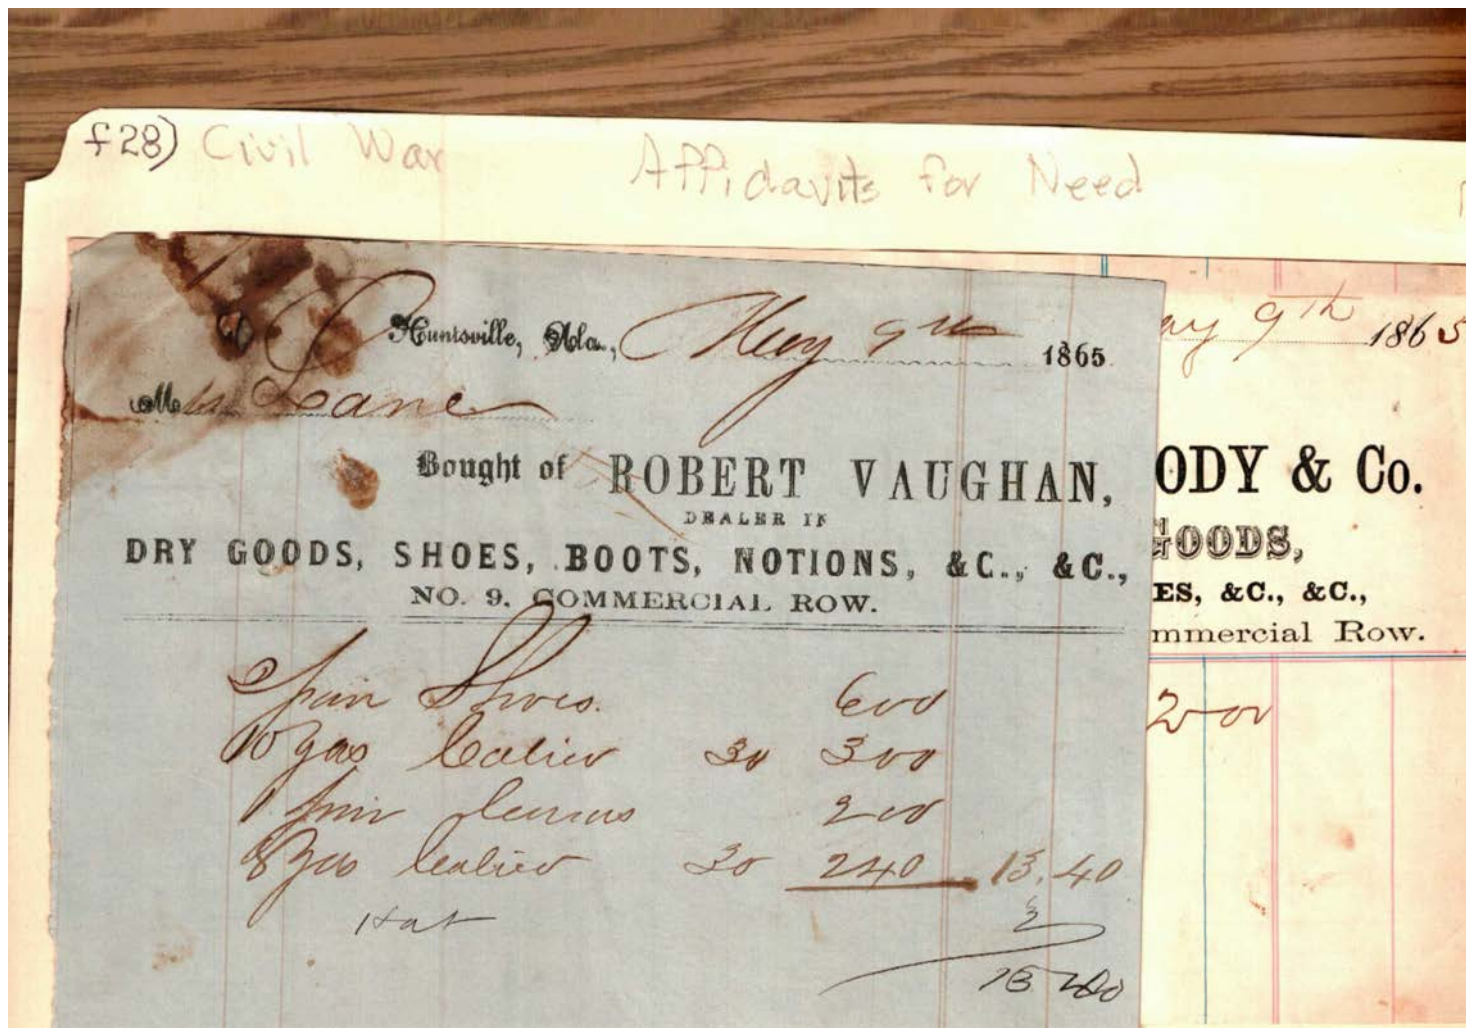 f28) Civil War Affidavits for Need
Huntsville, Ala., May 9th 1865
M Lane
Bought of ROBERT VAUGHAN,
DEALER IN
DRY GOODS, SHOES, BOOTS, NOTIONS, &C., &C.,
NO. 9. COMMERCIAL ROW.
2 pair Shoes. 600
10 yds Calico 30 300
1 pair 200
8 yds Calico 30 240 13.40
Hat 2
15 40
ay 9th 1865
ODY & Co.
GOODS,
ES, &C., &C.,
mmercial Row.
200